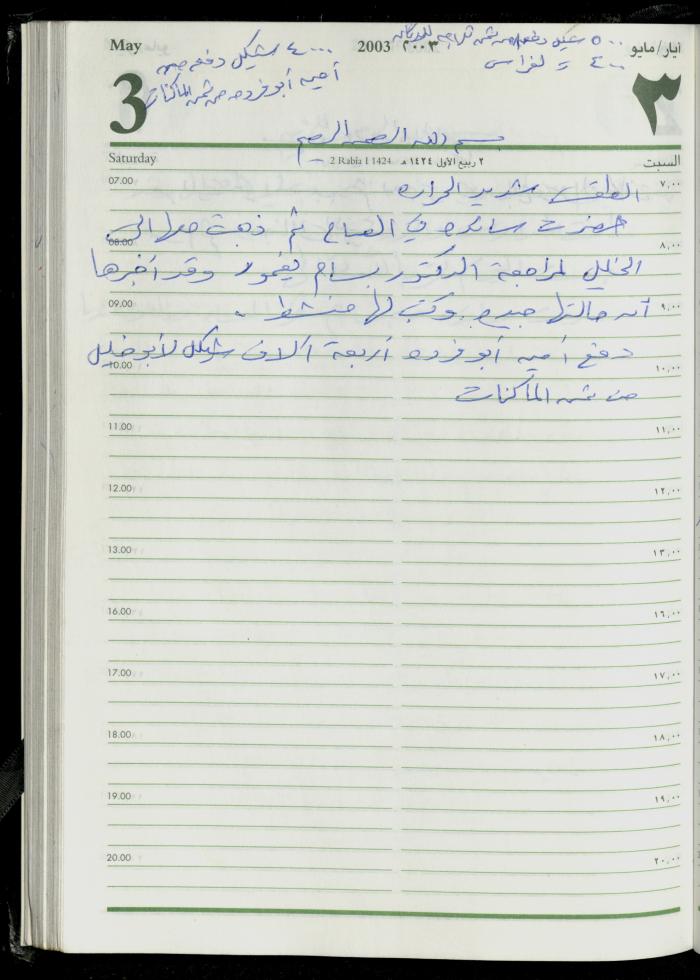 May
2003 ٢٠٠٣
أيار/مايو
3
٣
٥٠٠٠ شيكل دفعة من ثمن
٤٠٠ لفراس
٤٠٠٠ شيكل دفعة من
أمين أبو فروه من ثمن الماكنات
بسم الله الرحمن الرحيم
Saturday
2 Rabia I 1424 ٢ ربيع الأول ١٤٢٤ هـ
السبت
07.00 ٧,٠٠
الطقس شديد الحراره
حضرت ساكره في الصباح ثم ذهبت معها الى
08.00 ٨,٠٠
الخليل لمراجعة الدكتور بسام يغمور وقد أخبرها
09.00 ٩,٠٠
أن حالتها جيده وكتب لها منشط .
دفع أمين أبو فروه أربعة آلاف شيكل لأبو خليل
10.00 ١٠,٠٠
من ثمن الماكنات
11.00 ١١,٠٠
12.00 ١٢,٠٠
13.00 ١٣,٠٠
16.00 ١٦,٠٠
17.00 ١٧,٠٠
18.00 ١٨,٠٠
19.00 ١٩,٠٠
20.00 ٢٠,٠٠